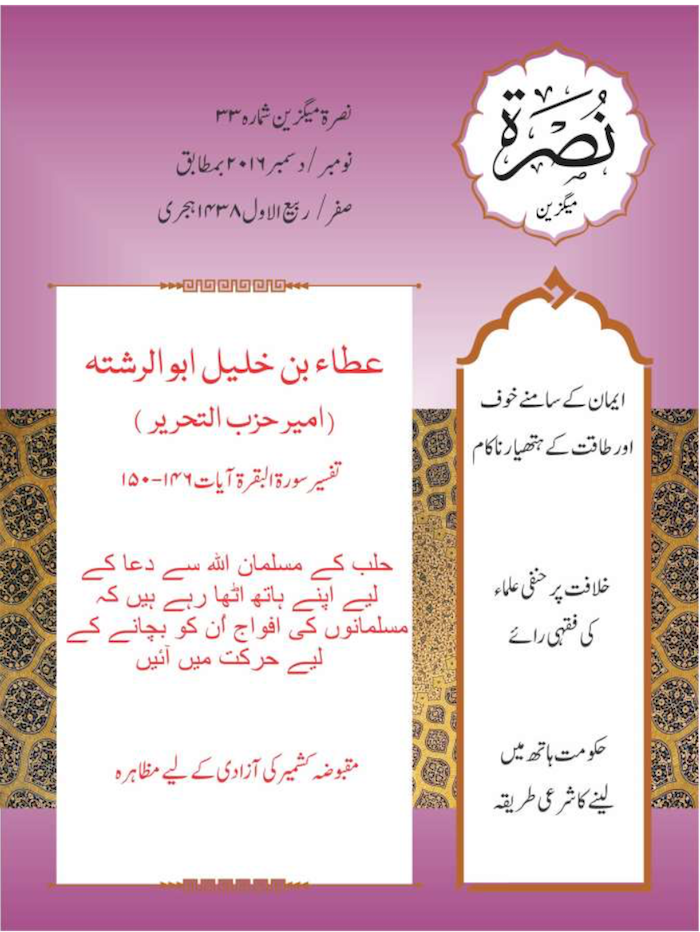 نُصْرَة
میگزین
نصرۃ میگزین شمارہ ۳۳
نومبر/دسمبر ۲۰۱۶ بمطابق
صفر/ ربیع الاول ۱۴۳۸ ہجری
ایمان کے سامنے خوف
اور طاقت کے ہتھیار ناکام
خلافت پر حنفی علماء
کی فقہی رائے
حکومت ہاتھ میں
لینے کا شرعی طریقہ
عطاء بن خلیل ابو الرشتہ
(امیر حزب التحریر )
تفسیر سورۃ البقرۃ آیات ۱۴۶-۱۵۰
حلب کے مسلمان اللہ سے دعا کے
لیے اپنے ہاتھ اٹھا رہے ہیں کہ
مسلمانوں کی افواج اُن کو بچانے کے
لیے حرکت میں آئیں
مقبوضہ کشمیر کی آزادی کے لیے مظاہرہ